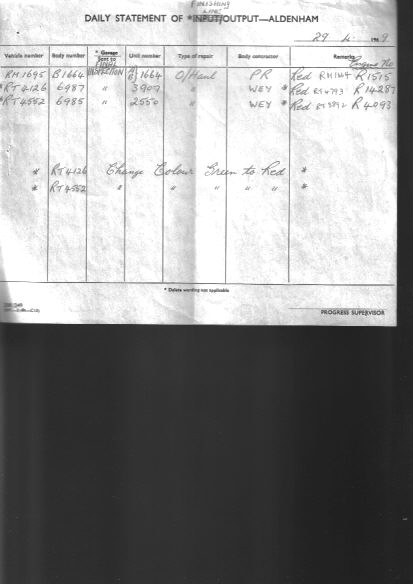 FINISHING
LINE
DAILY STATEMENT OF *INPUT/OUTPUT—ALDENHAM
29 . 4 . 1969
Vehicle number Body number * Garage Sent to Unit number Type of repair Body contractor Remarks
FINAL INSPECTION Engine No
RM1695 B1664 A/B 1664 O/Haul PR Red R1515
*RT4126 6987 " 3907 " WEY * Red RT4793 R14287
*RT4552 6985 " 2550 " WEY * Red R4093
* RT4126 Change Colour Green to Red *
* RT4552 " " " " " *
* Delete wording not applicable
PROGRESS SUPERVISOR